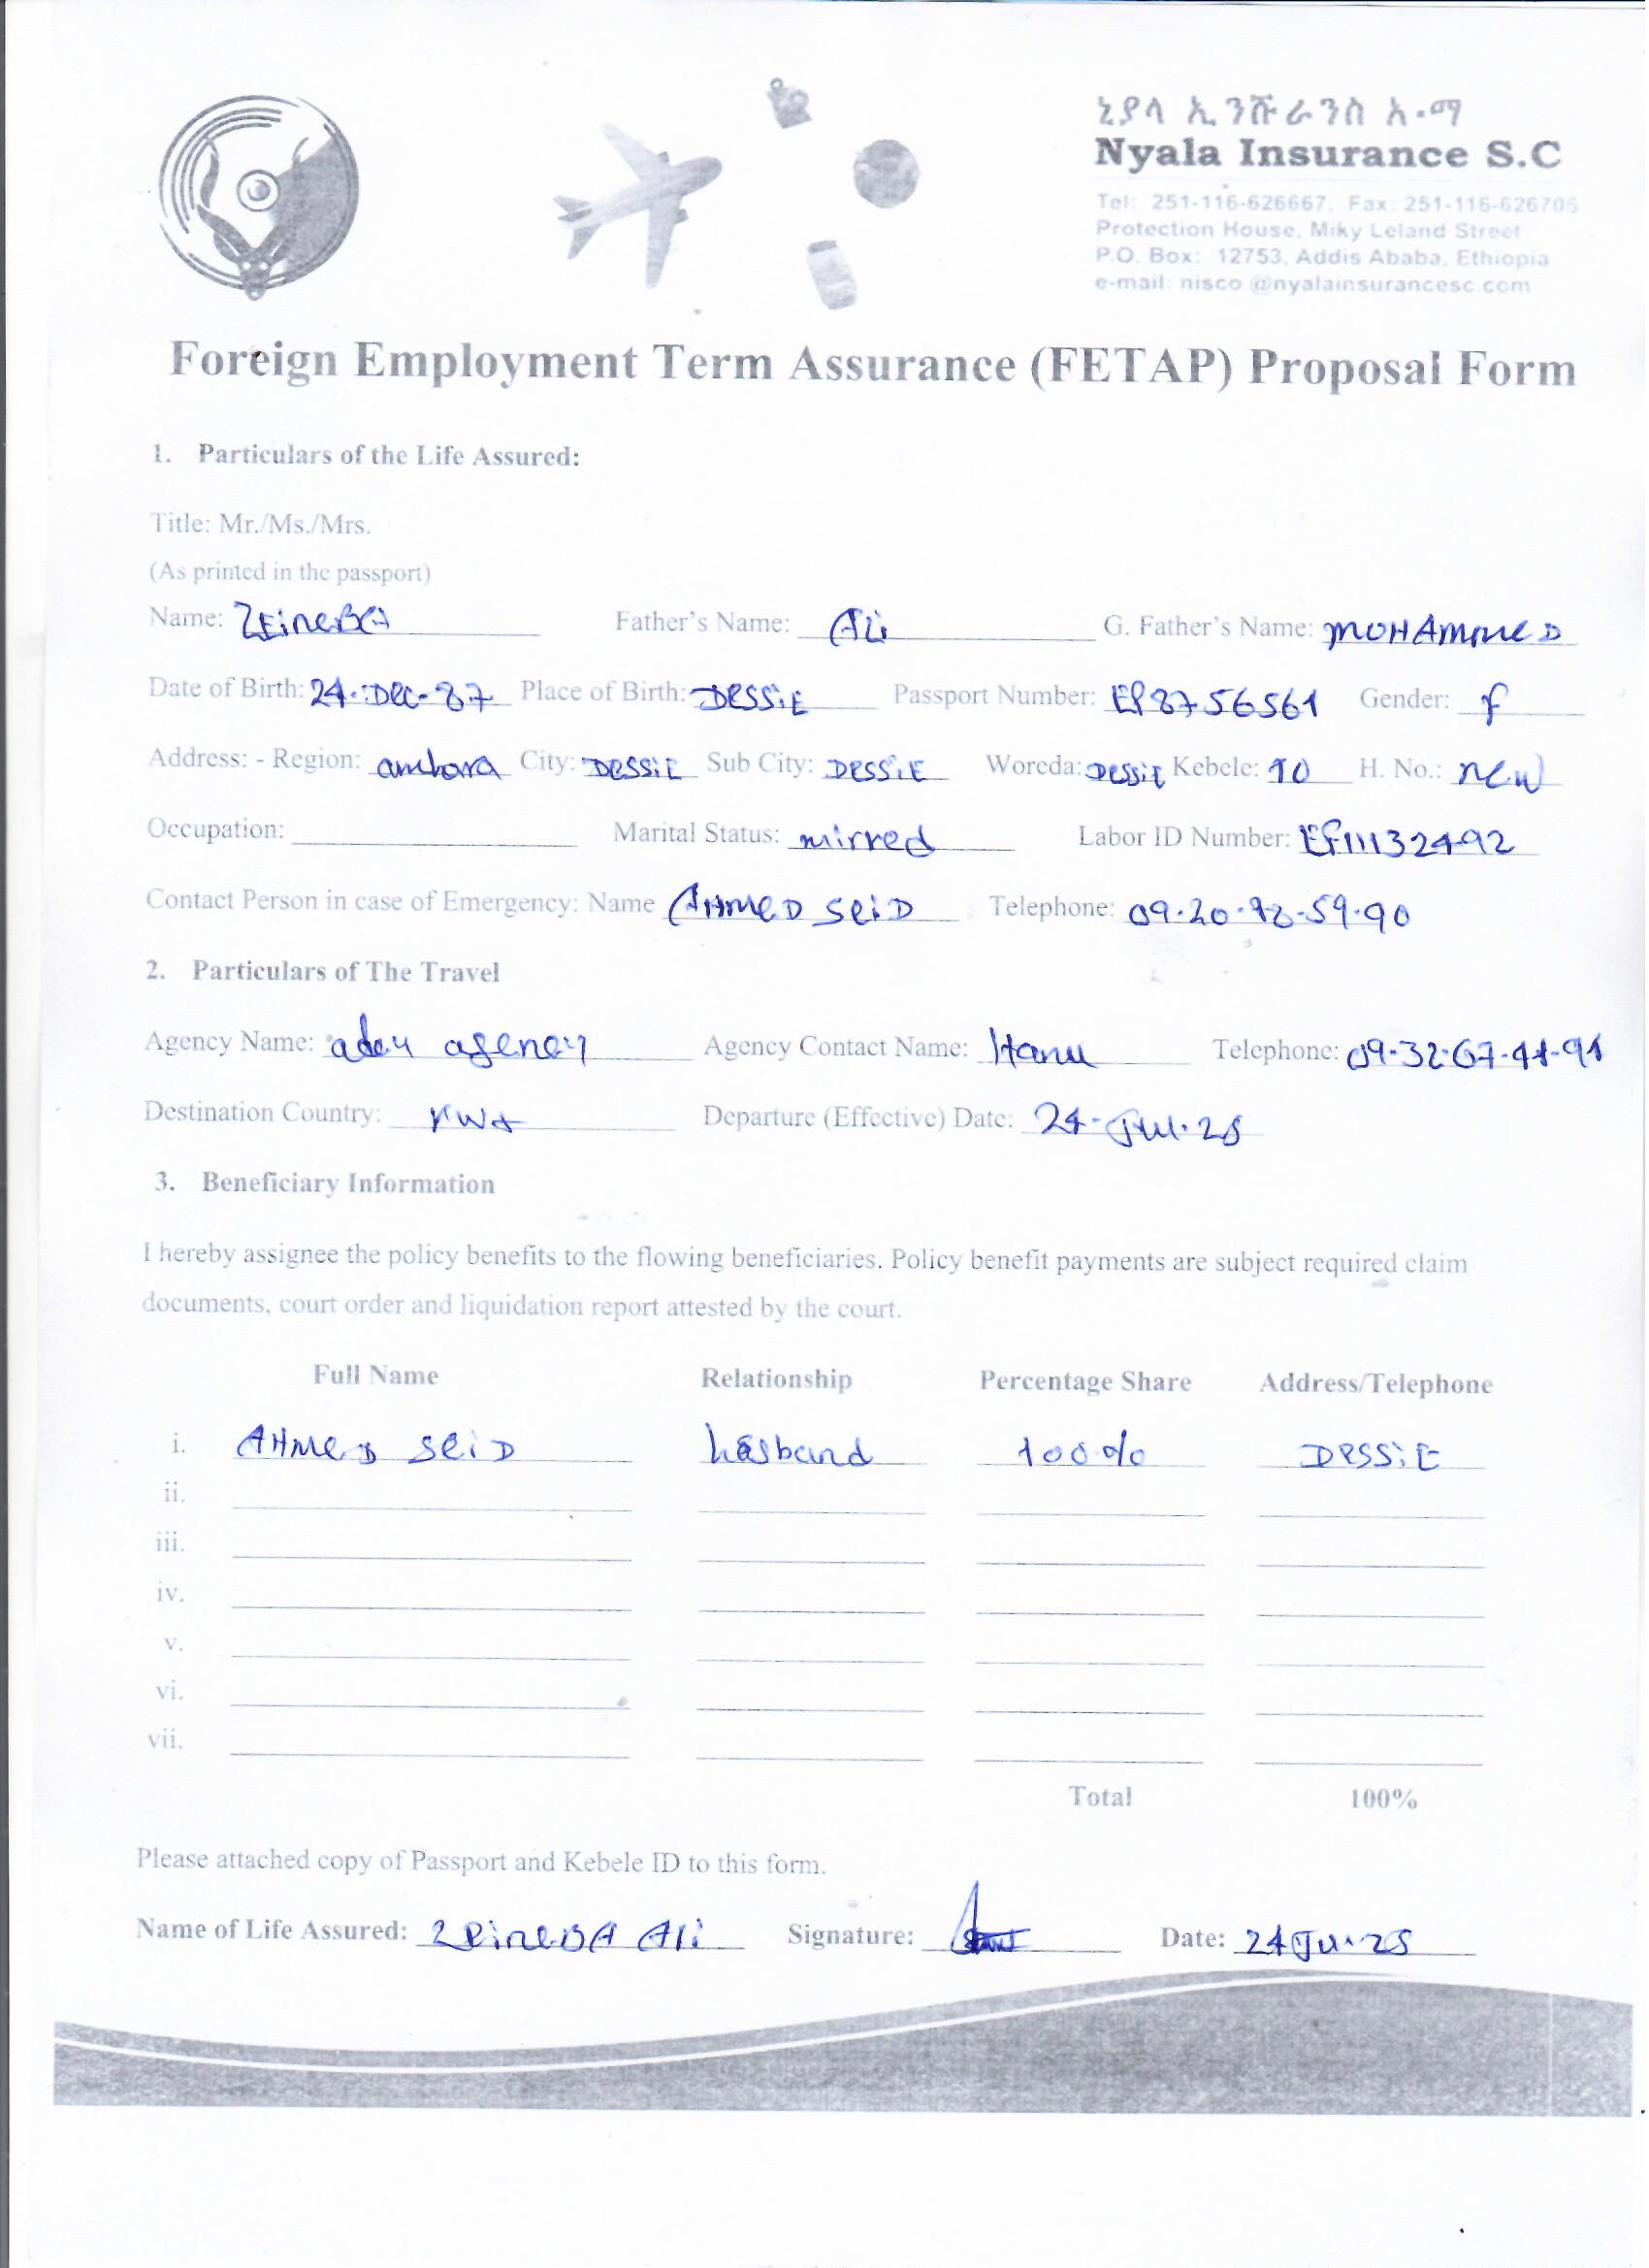 ኒያላ ኢንሹራንስ አ.ማ
Nyala Insurance S.C
Tel: 251-116-626667, Fax: 251-116-626706
Protection House, Miky Leland Street
P.O. Box: 12753, Addis Ababa, Ethiopia
e-mail: nisco @nyalainsurancesc.com
Foreign Employment Term Assurance (FETAP) Proposal Form
1. Particulars of the Life Assured:
Title: Mr./Ms./Mrs.
(As printed in the passport)
Name: ZEineBA Father's Name: Ali G. Father's Name: MOHAMMED
Date of Birth: 24-Dec-87 Place of Birth: DESSiE Passport Number: EP8756561 Gender: f
Address: - Region: amhara City: DESSiE Sub City: DESSiE Woreda: DESSiE Kebele: 10 H. No.: new
Occupation: Marital Status: mirred Labor ID Number: EF111132492
Contact Person in case of Emergency: Name AHMED SeiD Telephone:
2. Particulars of The Travel
Agency Name: adey agency Agency Contact Name: Hanu Telephone:
Destination Country: KWT Departure (Effective) Date: 24-Jul-25
3. Beneficiary Information
I hereby assignee the policy benefits to the flowing beneficiaries. Policy benefit payments are subject required claim
documents, court order and liquidation report attested by the court.
Full Name Relationship Percentage Share Address/Telephone
i. AHMED SeiD hasband 100% DESSiE
ii.
iii.
iv.
v.
vi.
vii.
Total 100%
Please attached copy of Passport and Kebele ID to this form.
Name of Life Assured: ZeineBA Ali Signature: Date: 24 Jul 25